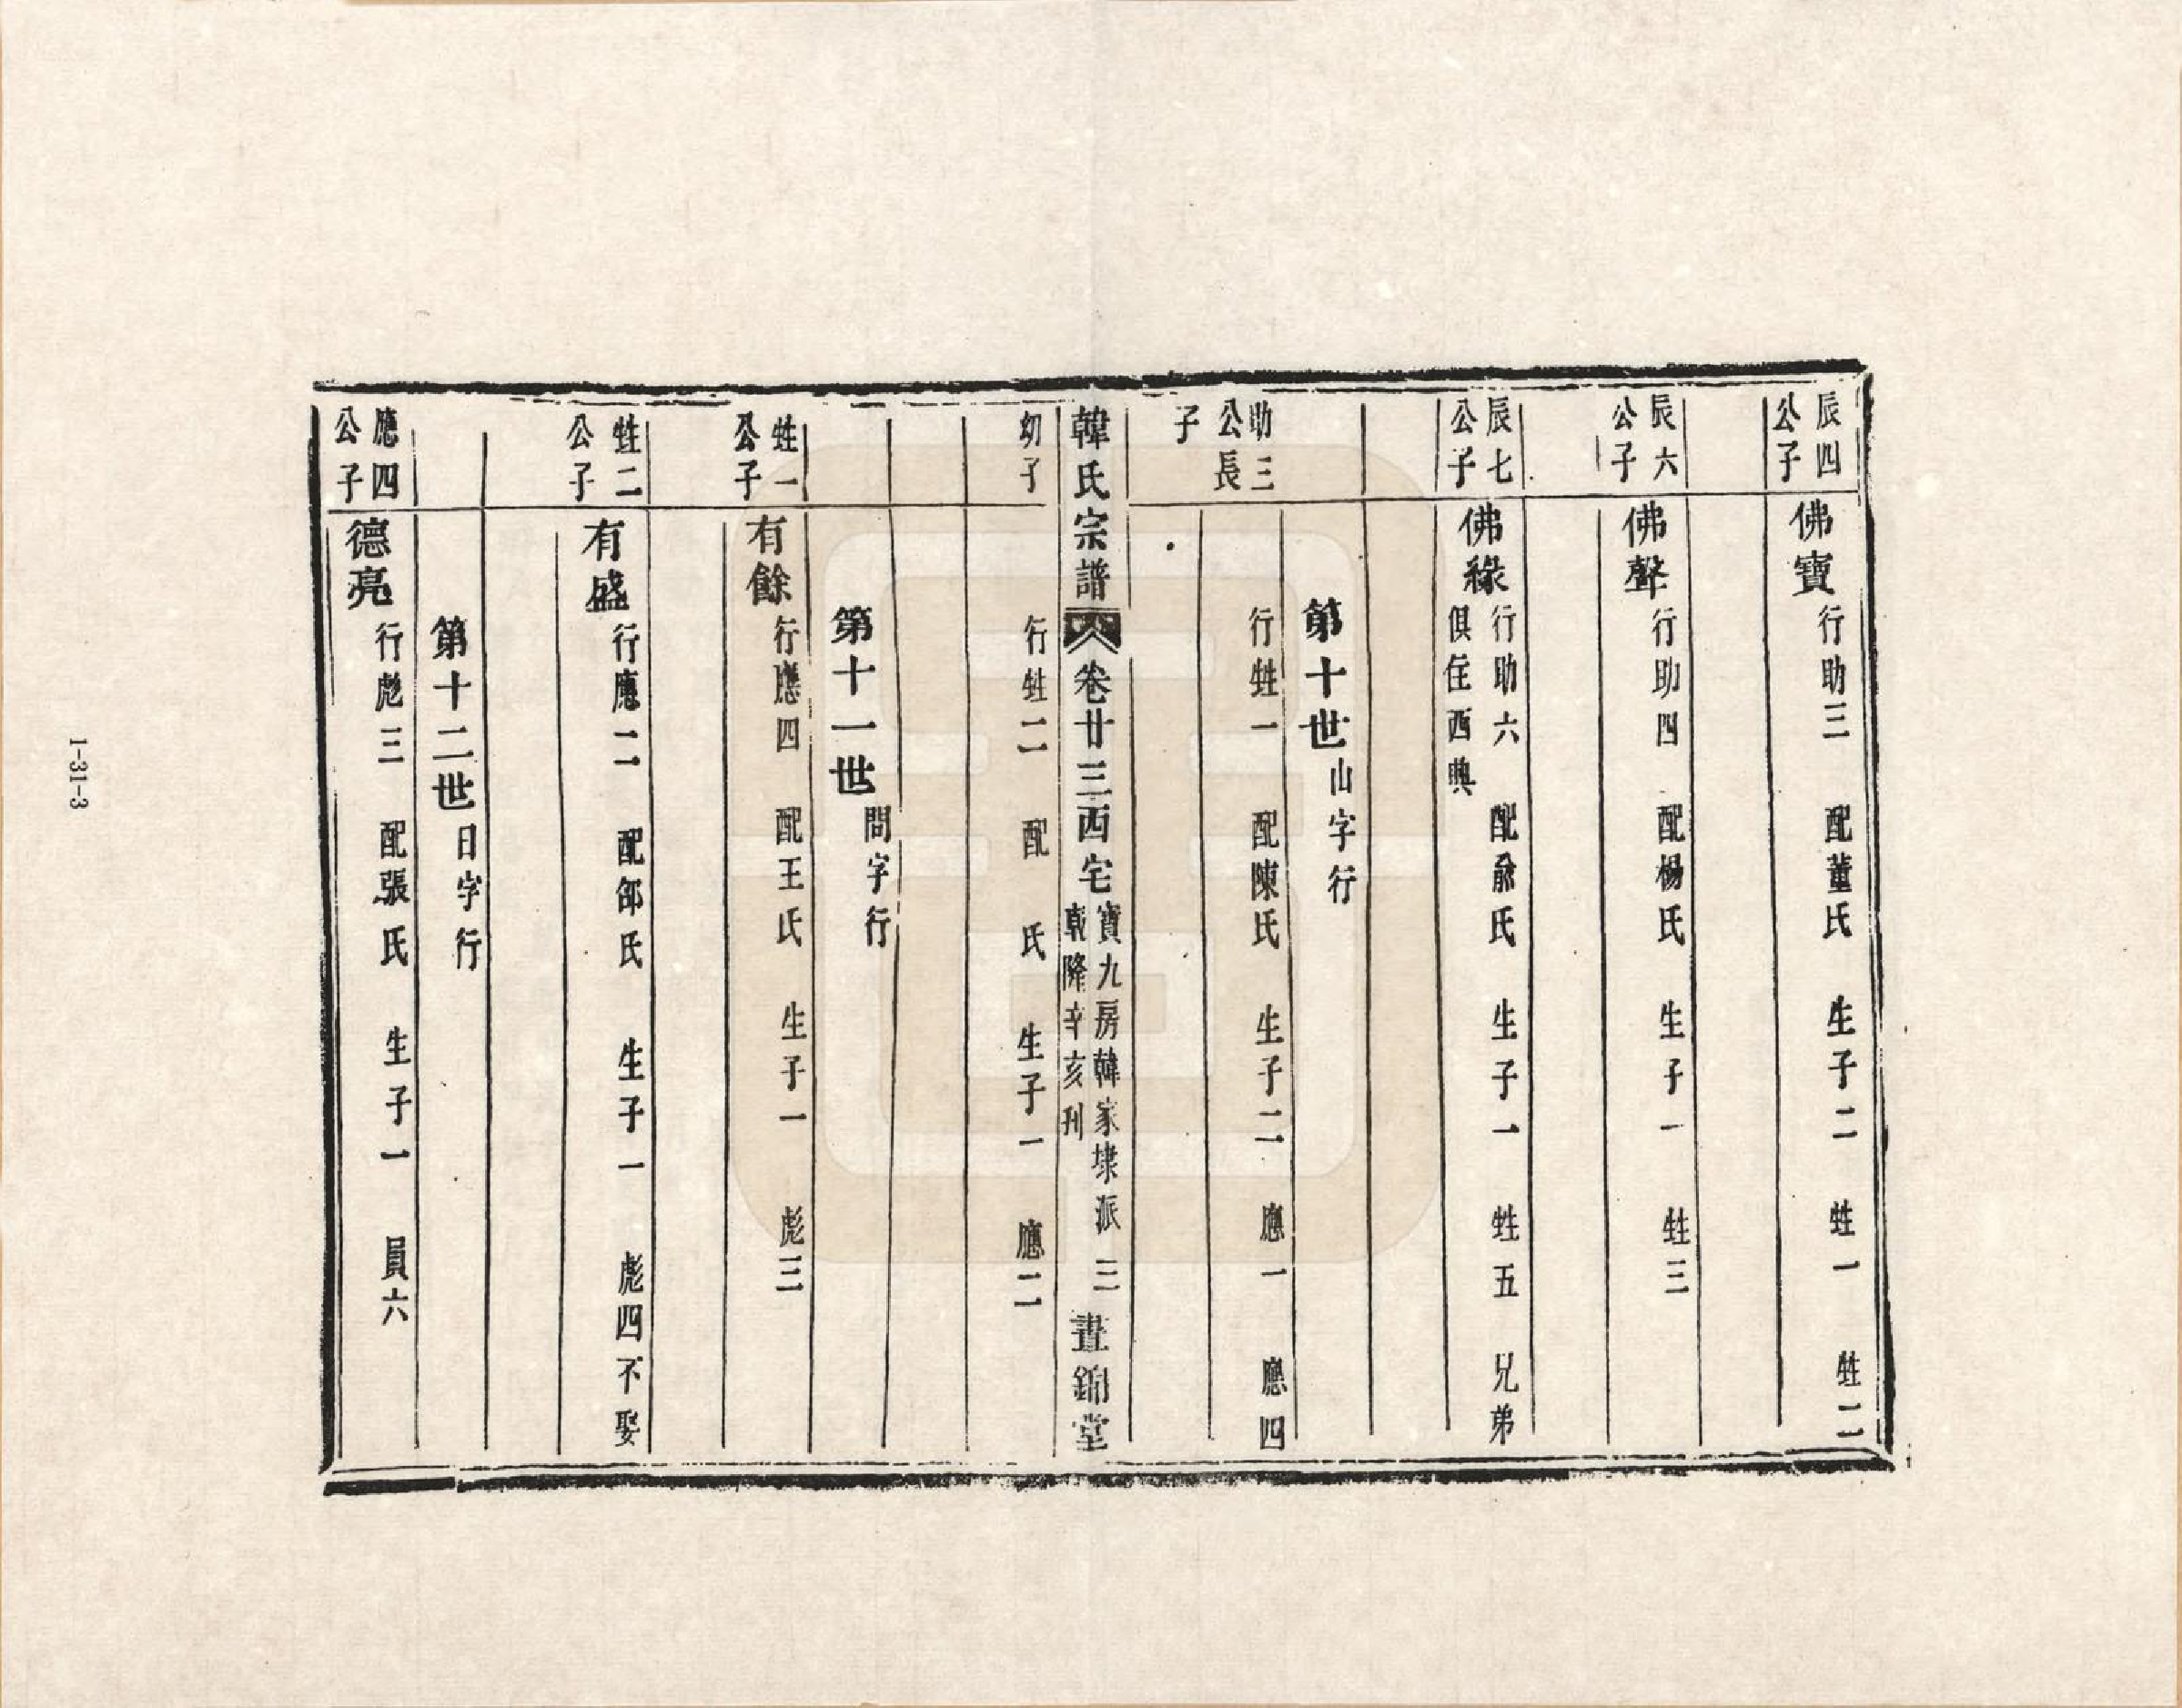 辰四公子
佛寶 行助三 配董氏 生子二 甡一 甡二
辰六公子
佛聲 行助四 配楊氏 生子一 甡三
辰七公子
佛緣 行助六 配俞氏 生子一 甡五 兄弟
俱住西興
第十世 山字行
助三公長子
行甡一 配陳氏 生子二 應一 應四
韓氏宗譜 卷廿三西宅 寶九房韓家埭派 三
乾隆辛亥刊
晝錦堂
幼子
行甡二 配 氏 生子一 應二
第十一世 問字行
甡一公子
有餘 行應四 配王氏 生子一 彪三
甡二公子
有盛 行應二 配邰氏 生子一 彪四不娶
第十二世 日字行
應四公子
德亮 行彪三 配張氏 生子一 員六
1-31-3